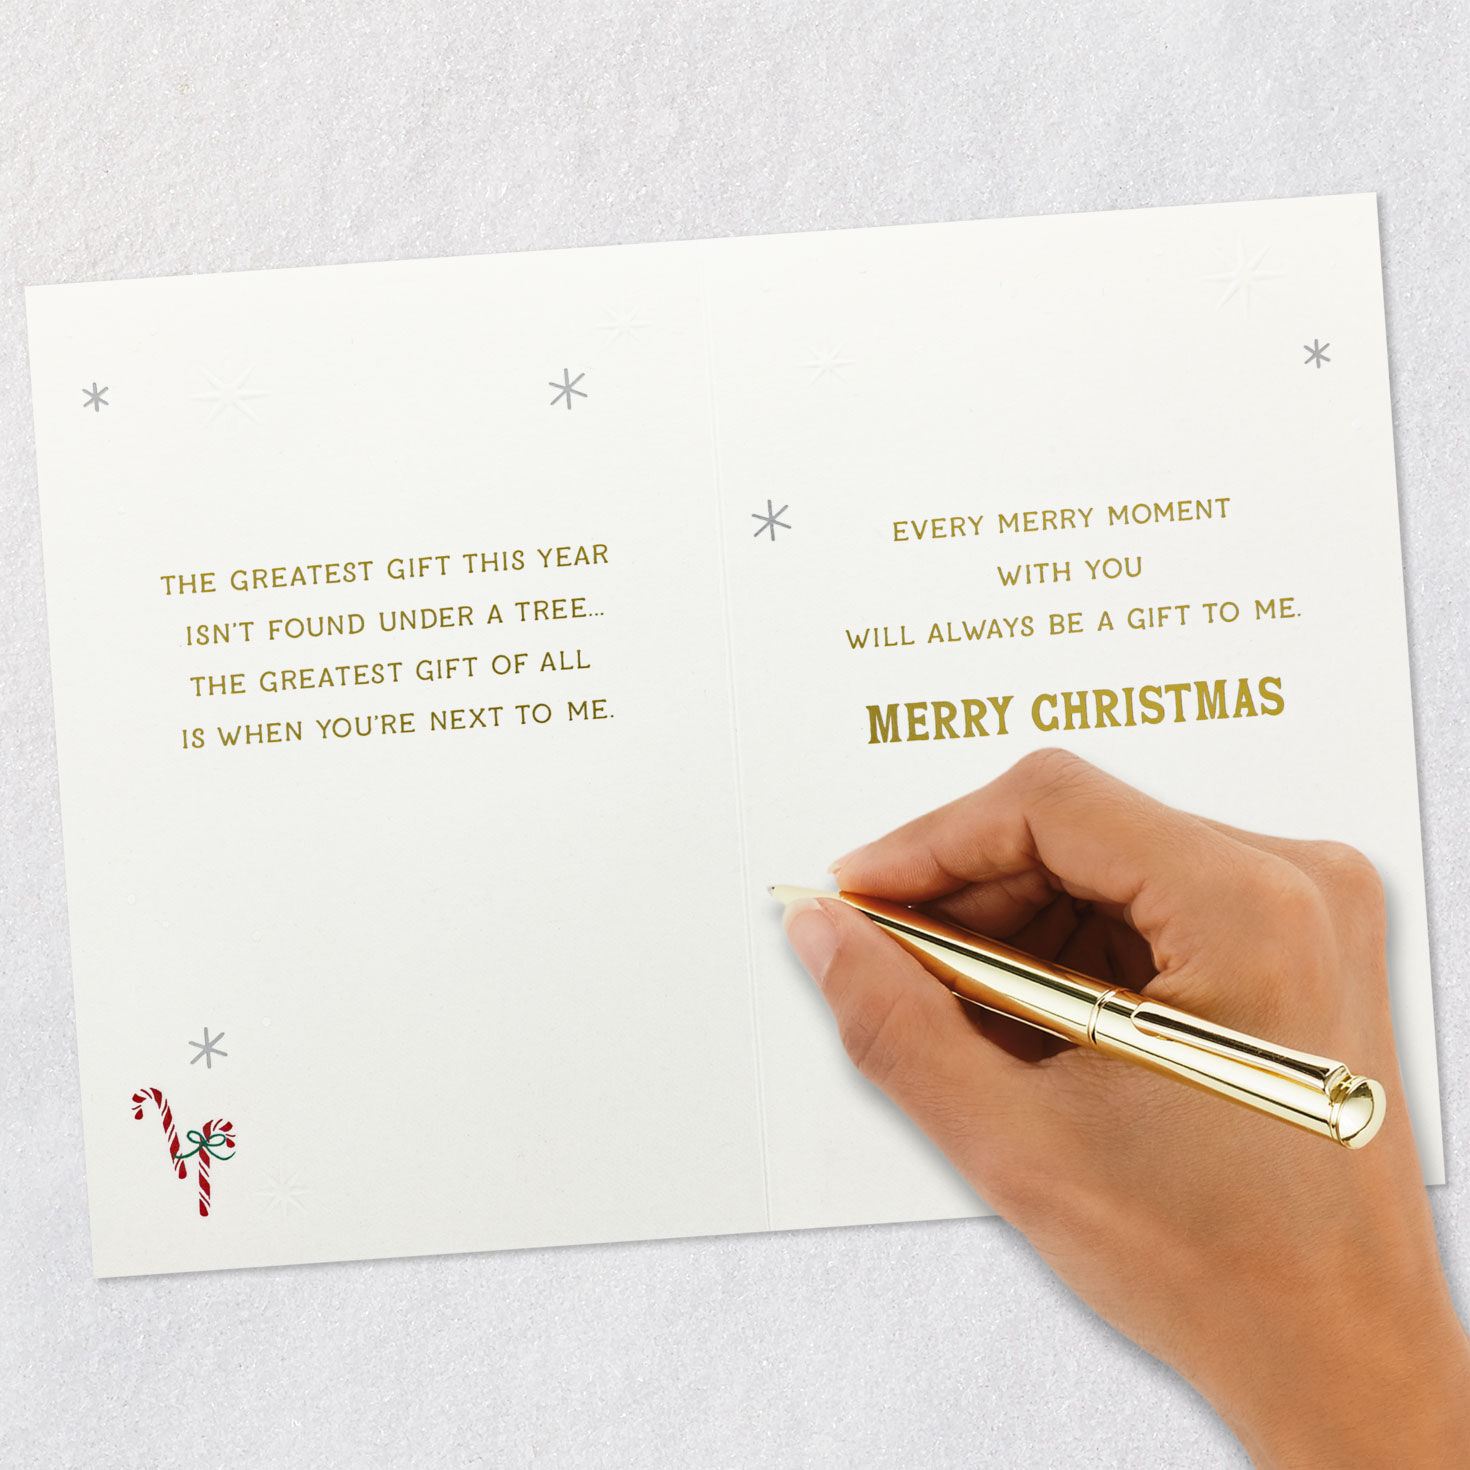 THE GREATEST GIFT THIS YEAR
ISN'T FOUND UNDER A TREE...
THE GREATEST GIFT OF ALL
IS WHEN YOU'RE NEXT TO ME.
EVERY MERRY MOMENT
WITH YOU
WILL ALWAYS BE A GIFT TO ME.
MERRY CHRISTMAS